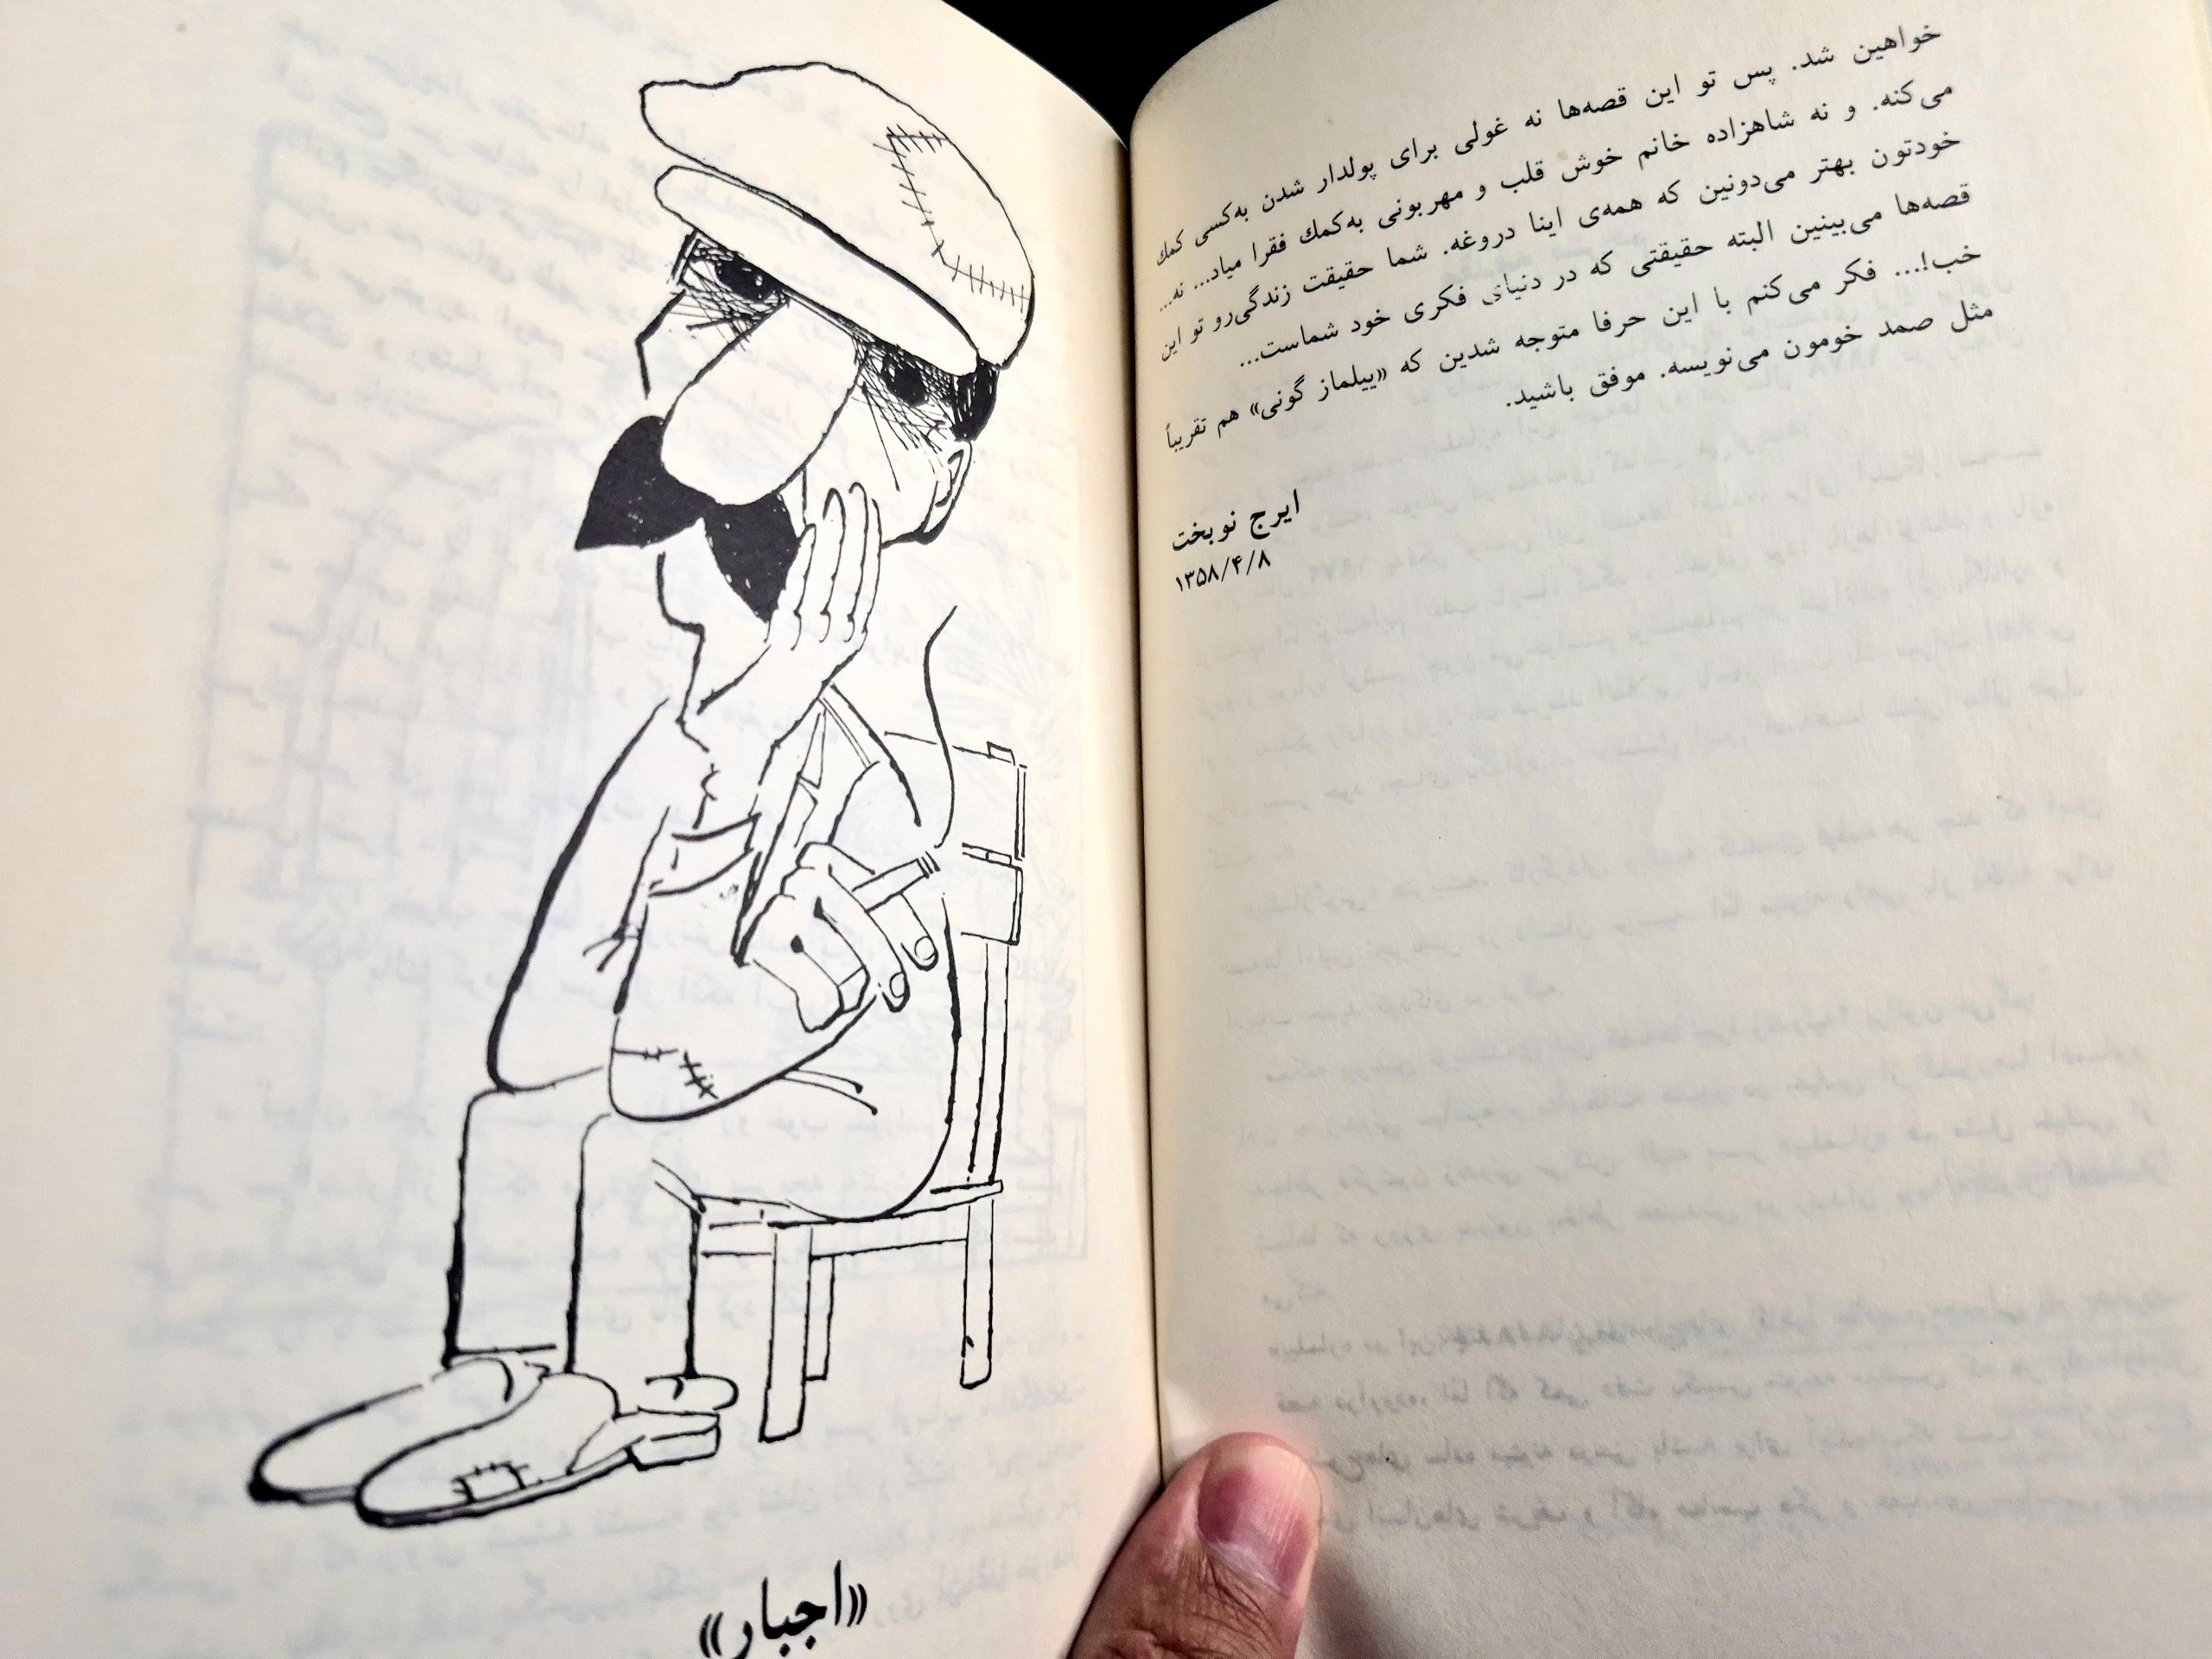 خواهین شد. پس تو این قصه‌ها نه غولی برای پولدار شدن به‌کسی کمك
می‌کنه. و نه شاهزاده خانم خوش قلب و مهربونی به‌کمك فقرا میاد... نه...
خودتون بهتر می‌دونین که همه‌ی اینا دروغه. شما حقیقت زندگی‌رو تو این
قصه‌ها می‌بینین البته حقیقتی که در دنیای فکری خود شماست...
خب!... فکر می‌کنم با این حرفا متوجه شدین که «ییلماز گونی» هم تقریباً
مثل صمد خومون می‌نویسه. موفق باشید.
ایرج نوبخت
۱۳۵۸/۴/۸
«اجبار»